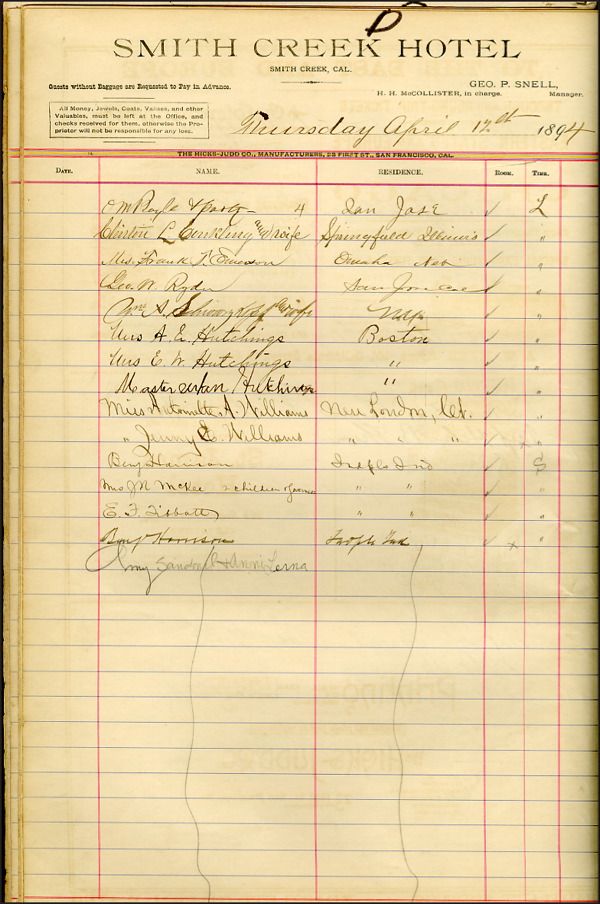 D
SMITH CREEK HOTEL
SMITH CREEK, CAL.
Guests without Baggage are Requested to Pay in Advance.
GEO. P. SNELL,
H. H. McCOLLISTER, in charge. Manager.
All Money, Jewels, Coats, Valises, and other
Valuables, must be left at the Office, and
checks received for them, otherwise the Pro-
prietor will not be responsible for any loss.
Thursday April 12th 1894
14 THE HICKS-JUDD CO., MANUFACTURERS, 23 FIRST ST., SAN FRANCISCO, CAL.
DATE. NAME. RESIDENCE. ROOM. TIME.
& party 4 San Jose ✓ L
Clinton L. wife Springfield Illinois ✓ "
Mrs. Frank Omaha Neb ✓ "
Geo. W. Ryder San Jose ✓ "
Wm A. wife ✓ "
Mrs A. E. Hutchings Boston ✓ "
Mrs E. W. Hutchings " ✓ "
Master Hutchings " ✓ "
Miss Antoinette A. Williams New London, Ct. ✓ "
" Jenny C. Williams " " " ✓ x "
Benj Harrison Indpls Ind ✓ S
Mrs J R McKee 2 children & " " ✓ "
E. F. Tibbott " " ✓ "
Benj Harrison Indpls Ind ✓ x "